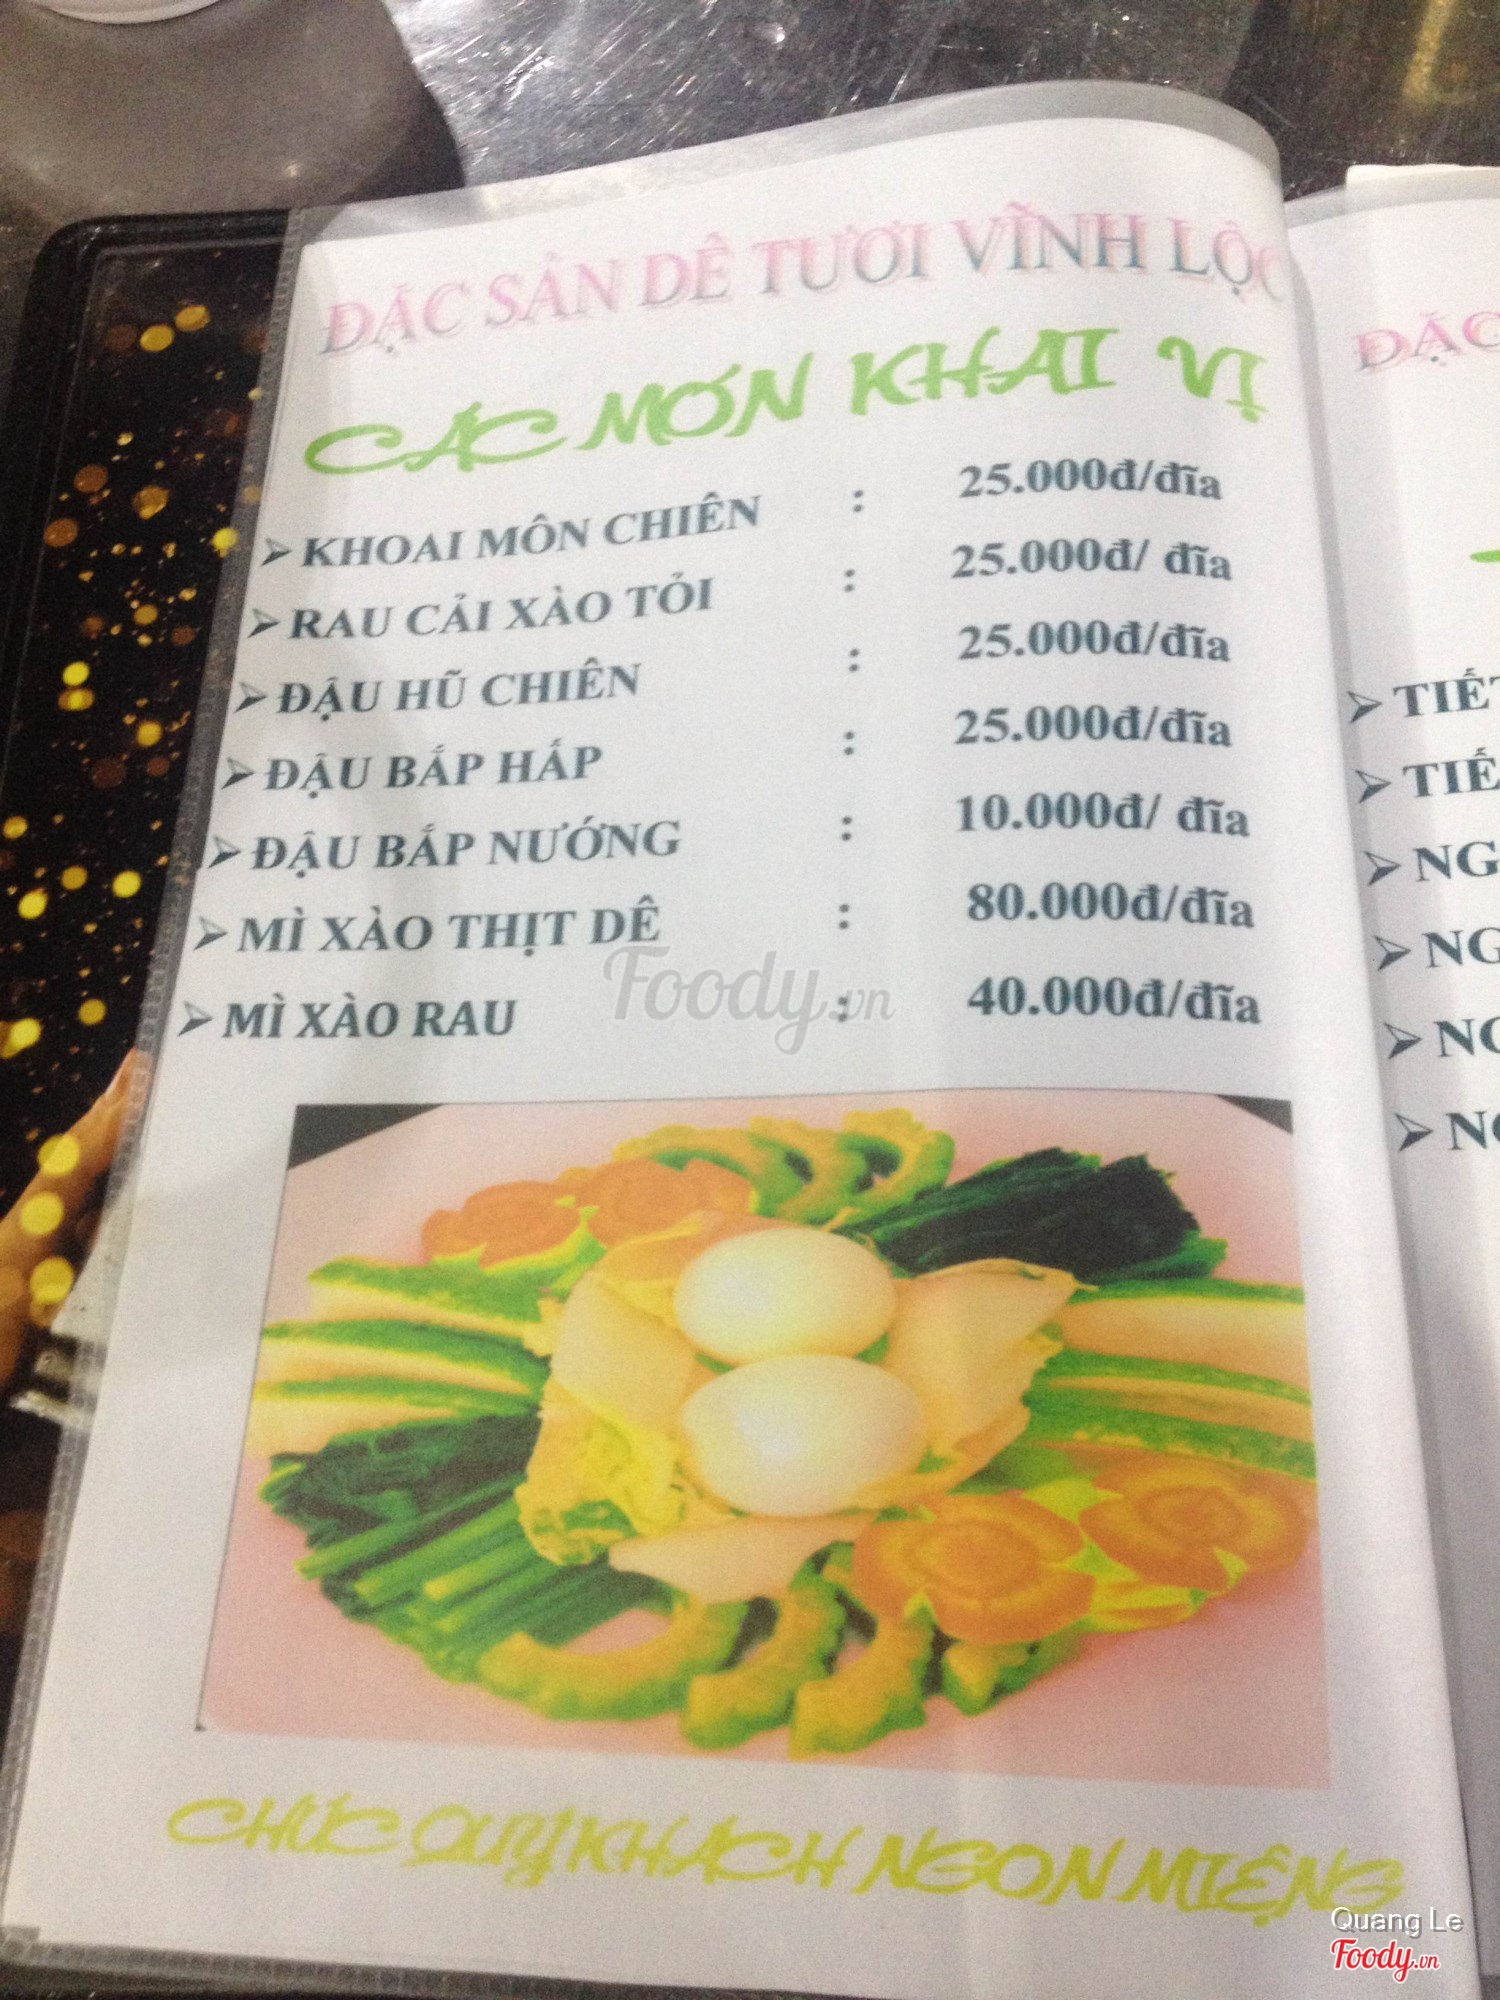 ĐẶC SẢN DÊ TƯƠI VĨNH LỘC
CÁC MÓN KHAI VỊ
➢ KHOAI MÔN CHIÊN : 25.000đ/đĩa
➢ RAU CẢI XÀO TỎI : 25.000đ/ đĩa
➢ ĐẬU HŨ CHIÊN : 25.000đ/đĩa
➢ ĐẬU BẮP HẤP : 25.000đ/đĩa
➢ ĐẬU BẮP NƯỚNG : 10.000đ/ đĩa
➢ MÌ XÀO THỊT DÊ : 80.000đ/đĩa
➢ MÌ XÀO RAU : 40.000đ/đĩa
Foody.vn
CHÚC QUÝ KHÁCH NGON MIỆNG
ĐẶC
➢ TIẾT
➢ TIẾ
➢ NG
➢ NG
Quang Le
Foody.vn